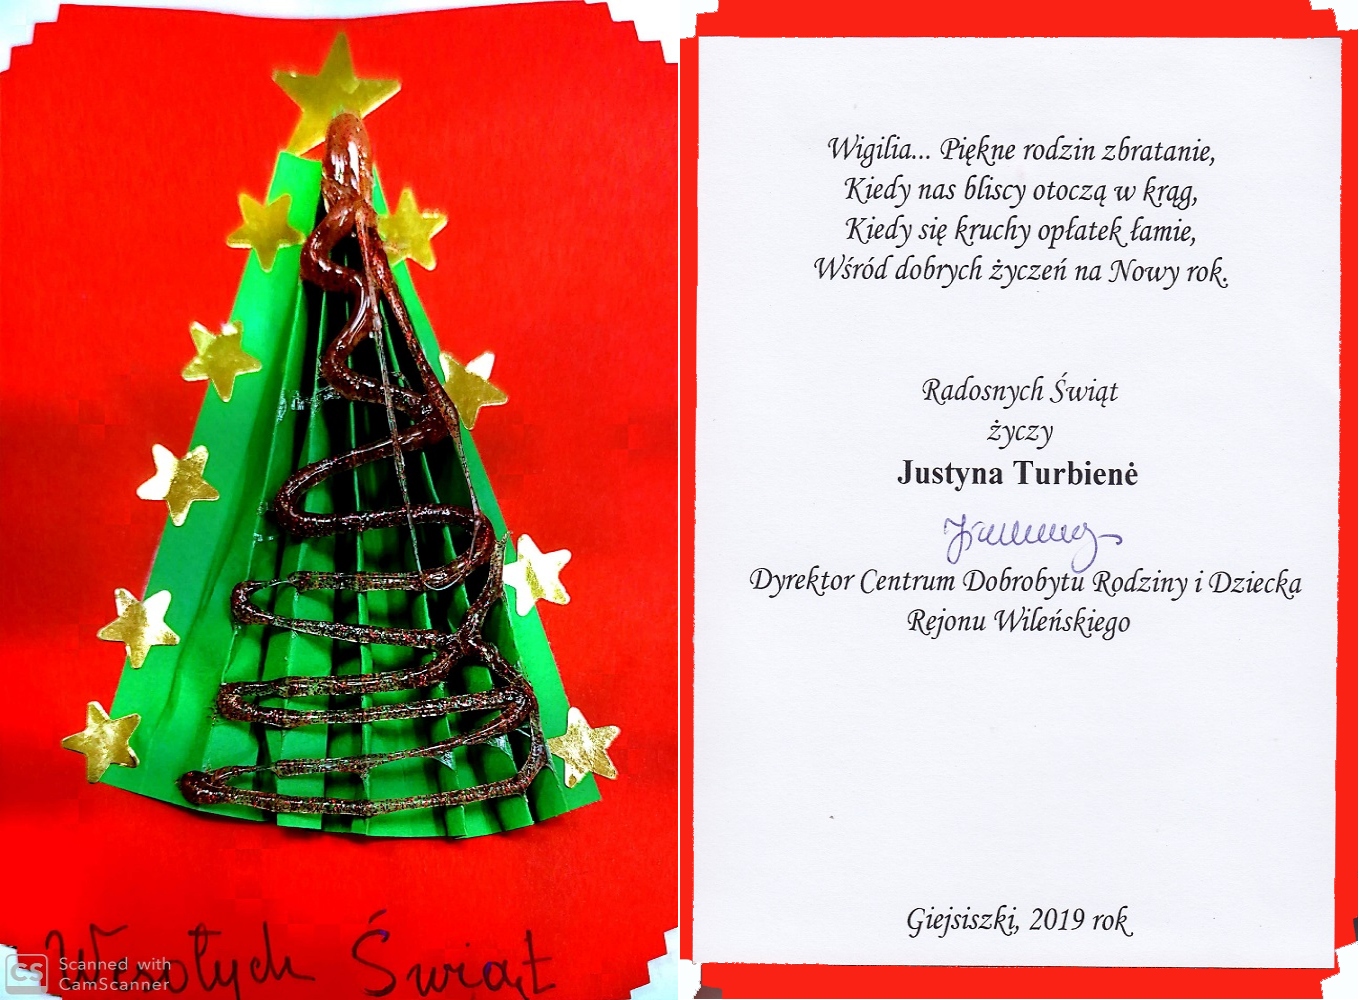 Wesołych Świąt
CS
Scanned with
CamScanner
Wigilia... Piękne rodzin zbratanie,
Kiedy nas bliscy otoczą w krąg,
Kiedy się kruchy opłatek łamie,
Wśród dobrych życzeń na Nowy rok.
Radosnych Świąt
życzy
Justyna Turbienė
Dyrektor Centrum Dobrobytu Rodziny i Dziecka
Rejonu Wileńskiego
Giejsiszki, 2019 rok